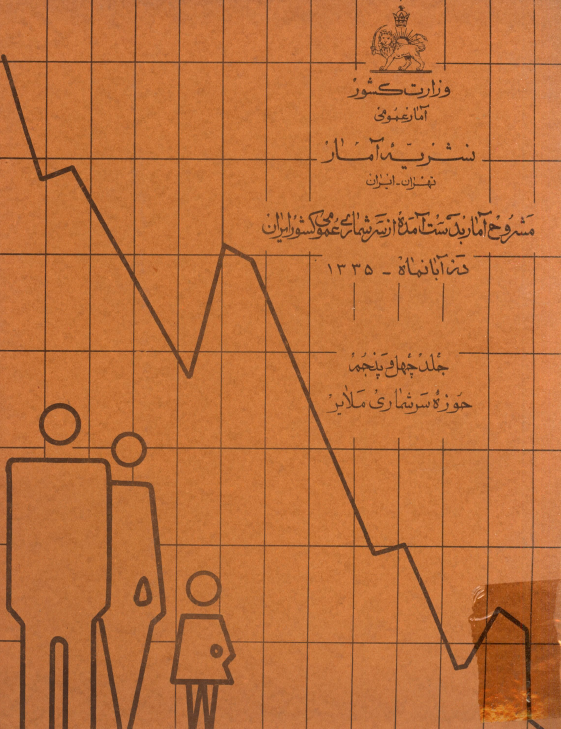 وزارت کشور
آمار عمومی
نشریه آمار
تهران - ایران
مشروح آمار بدست آمده از سرشماری عمومی کشور ایران
در آبانماه - ۱۳۳۵
جلد چهل و پنجم
حوزه سرشماری ملایر